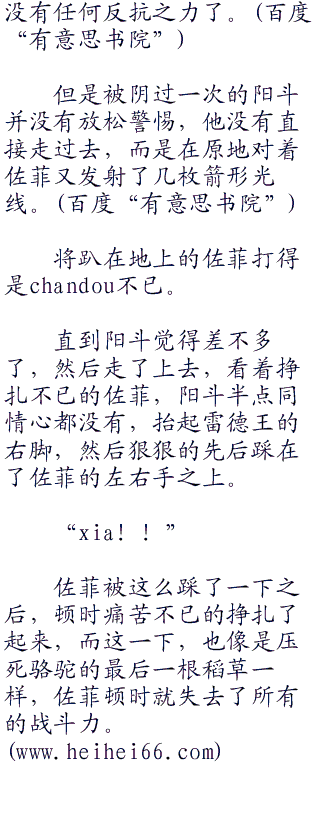 没有任何反抗之力了。(百度
“有意思书院”)
但是被阴过一次的阳斗
并没有放松警惕，他没有直
接走过去，而是在原地对着
佐菲又发射了几枚箭形光
线。(百度“有意思书院”)
将趴在地上的佐菲打得
是chandou不已。
直到阳斗觉得差不多
了，然后走了上去，看着挣
扎不已的佐菲，阳斗半点同
情心都没有，抬起雷德王的
右脚，然后狠狠的先后踩在
了佐菲的左右手之上。
“xia！！”
佐菲被这么踩了一下之
后，顿时痛苦不已的挣扎了
起来，而这一下，也像是压
死骆驼的最后一根稻草一
样，佐菲顿时就失去了所有
的战斗力。
(www.heihei66.com)